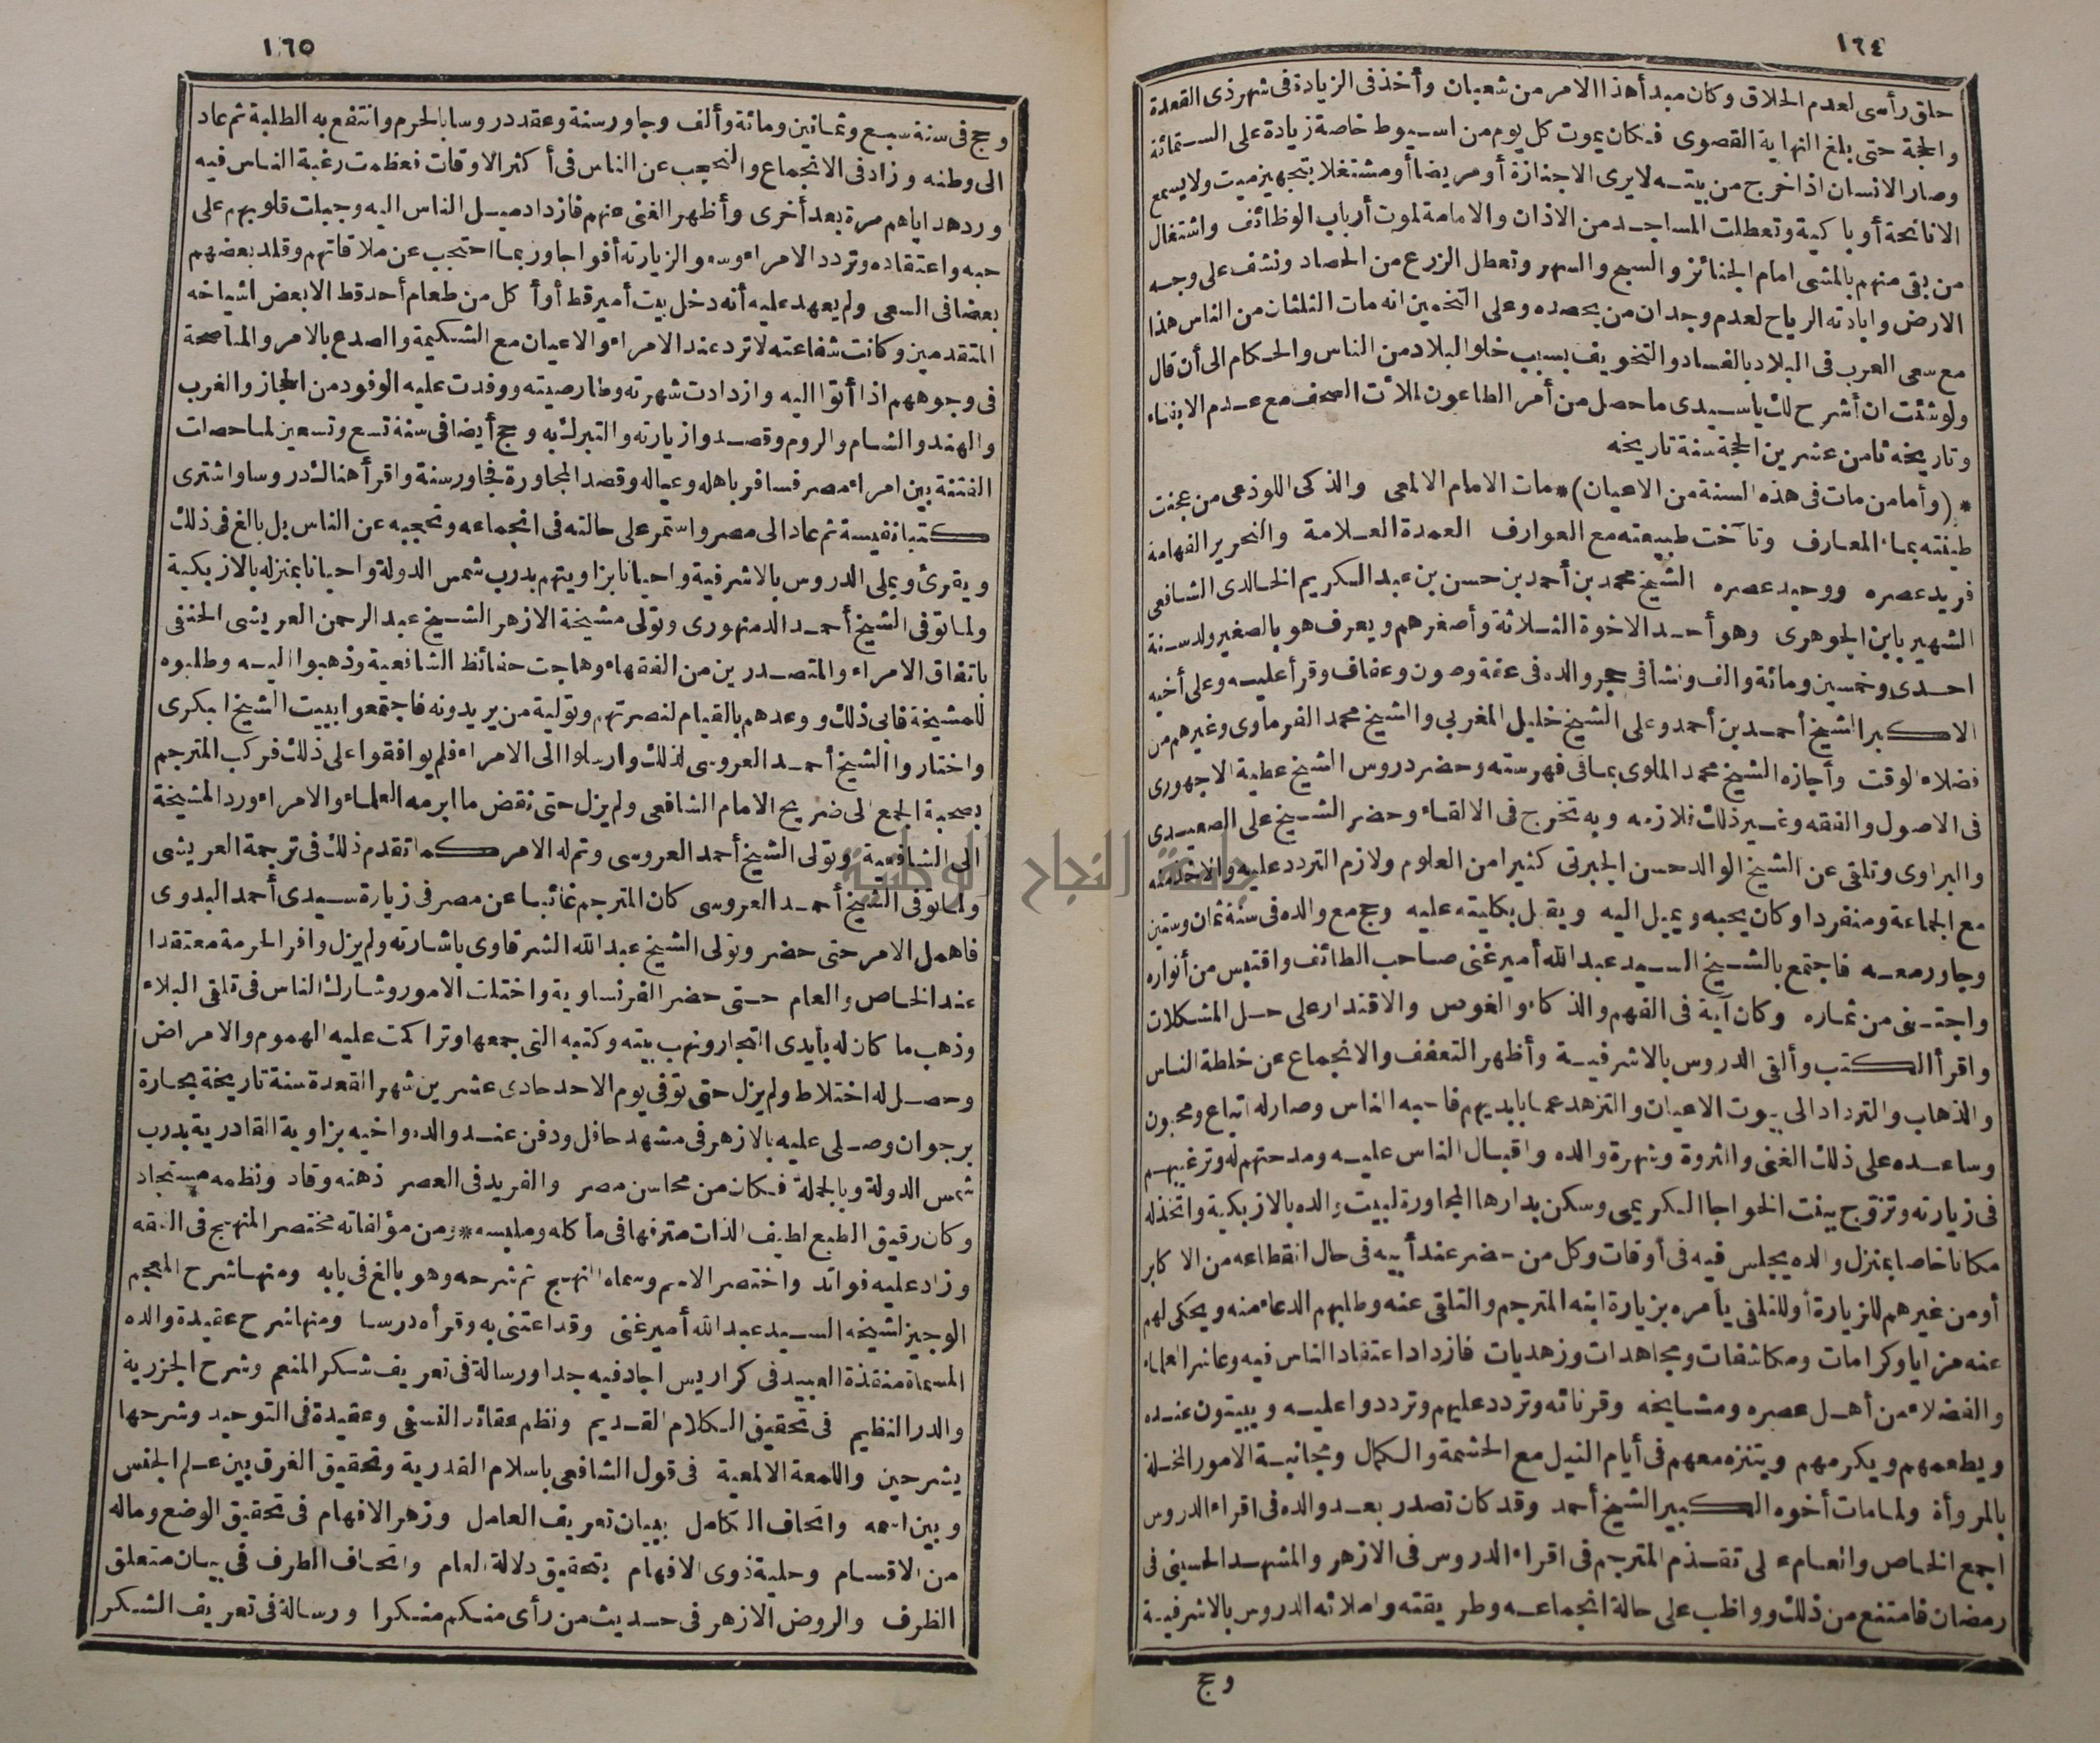 ١٦٤
حلق رأسى لعدم الحلاق وكان مبدأ هذا الامر من شعبان وأخذ فى الزيادة فى شهر ذى القعدة
والحجة حتى بلغ النهاية القصوى فكان يموت كل يوم من اسيوط خاصة زيادة على الستمائة
وصار الانسان اذا خرج من بيته لا يرى الا جنازة أو مريضا أو مشتغلا بتجهيز ميت ولا يسمع
الا نائحة أو باكية وتعطلت المساجد من الاذان والامامة لموت أرباب الوظائف واشتغال
من بقى منهم بالمشى امام الجنائز والسبح والسهر وتعطل الزرع من الحصاد ونشف على وجه
الارض وابادته الرياح لعدم وجدان من يحصده وعلى التخمين انه مات الثلثان من الناس هذا
مع سعى العرب فى البلاد بالفساد والتخويف بسبب خلو البلاد من الناس والحكام الى أن قال
ولو شئت ان أشرح لك ياسيدى ما حصل من أمر الطاعون لملأت الصحف مع عدم الانتهاء
وتاريخه ثامن عشرين الحجة سنة تاريخه
* (وأما من مات فى هذه السنة من الاعيان) * مات الامام الالمعى والذكى اللوذعى من عجنت
طينته بماء المعارف وتآخت طبيعته مع العوارف العمدة العلامة والنحرير الفهامة
فريد عصره ووحيد عصره الشيخ محمد بن أحمد بن حسن بن عبد الكريم الخالدى الشافعى
الشهير بابن الجوهرى وهو أحد الاخوة الثلاثة وأصغرهم ويعرف هو بالصغير ولد سنة
احدى وخمسين ومائة والف ونشأ فى حجر والده فى عفة وصون وعفاف وقرأ عليه وعلى أخيه
الاكبر الشيخ أحمد بن أحمد وعلى الشيخ خليل المغربى والشيخ محمد الفرماوى وغيرهم من
فضلاء الوقت وأجازه الشيخ محمد الملوى بما فى فهرسته وحضر دروس الشيخ عطية الاجهورى
فى الاصول والفقه وغير ذلك فلازمه وبه تخرج فى الالقاء وحضر الشيخ على الصعيدى
والبراوى وتلقى عن الشيخ الوالد حسن الجبرتى كثيرا من العلوم ولازم التردد عليه والاخذ منه
مع الجماعة ومنفردا وكان يحبه ويميل اليه ويقبل بكليته عليه وحج مع والده فى سنة ثمان وستين
وجاور معه فاجتمع بالشيخ السيد عبد الله أميرغنى صاحب الطائف واقتبس من أنواره
واجتنى من ثماره وكان آية فى الفهم والذكاء والغوص والاقتدار على حل المشكلات
واقرأ الكتب وألقى الدروس بالاشرفية وأظهر التعفف والانجماع عن خلطة الناس
والذهاب والترداد الى بيوت الاعيان والتزهد عما بايديهم فاحبه الناس وصار له اتباع ومحبون
وساعده على ذلك الغنى والثروة وشهرة والده واقبال الناس عليه ومدحتهم له وترغيبهم
فى زيارته وتزوج ببنت الخواجا الكريمى وسكن بدارها المجاورة لبيت والده بالازبكية واتخذ له
مكانا خاصا بمنزل والده يجلس فيه فى أوقات وكل من حضر عند أبيه فى حال انقطاعه من الاكابر
أو من غيرهم للزيارة أو للتلقى يأمره بزيارة ابنه المترجم والتلقى عنه وطلبهم الدعاء منه ويحكى لهم
عنه مزايا وكرامات ومكاشفات ومجاهدات وزهديات فازداد اعتقاد الناس فيه وعاشر العلماء
والفضلاء من أهل عصره ومشايخه وقرنائه وتردد عليهم وترددوا عليه ويبيتون عنده
ويطعمهم ويكرمهم ويتنزه معهم فى أيام النيل مع الحشمة والكمال ومجانبة الامور المخلة
بالمروأة ولما مات أخوه الكبير الشيخ أحمد وقد كان تصدر بعد والده فى اقراء الدروس
اجمع الخاص والعام على تقدم المترجم فى اقراء الدروس فى الازهر والمشهد الحسينى فى
رمضان فامتنع من ذلك وواظب على حالة انجماعه وطريقته واملائه الدروس بالاشرفية
وحج
١٦٥
وحج فى سنة سبع وثمانين ومائة وألف وجاور سنة وعقد دروسا بالحرم وانتفع به الطلبة ثم عاد
الى وطنه وزاد فى الانجماع والتحجب عن الناس فى أكثر الاوقات فعظمت رغبة الناس فيه
وردهد اياهم مرة بعد أخرى وأظهر الغنى عنهم فازداد ميل الناس اليه وجبلت قلوبهم على
حبه واعتقاده وتردد الامراء وسعوا لزيارته أفواجا وربما احتجب عن ملاقاتهم وقلد بعضهم
بعضا فى السعى ولم يعهد عليه أنه دخل بيت أمير قط أو أكل من طعام أحد قط الا بعض اشياخه
المتقدمين وكانت شفاعته لا ترد عند الامراء والاعيان مع الشكيمة والصدع بالامر والمناصحة
فى وجوههم اذا أتوا اليه وازدادت شهرته وطار صيته ووفدت عليه الوفود من الحجاز والغرب
والهند والشام والروم وقصدوا زيارته والتبرك به وحج أيضا فى سنة تسع وتسعين لما حصات
الفتنة بين امراء مصر فسافر باهله وعياله وقصد المجاورة فجاور سنة واقرأ هناك دروسا واشترى
كتبا نفيسة ثم عاد الى مصر واستمر على حالته فى انجماعه وتحجبه عن الناس بل بالغ فى ذلك
ويقرئ ويملى الدروس بالاشرفية واحيانا بزاويتهم بدرب شمس الدولة واحيانا بمنزله بالازبكية
ولما توفى الشيخ أحمد الدمنهورى وتولى مشيخة الازهر الشيخ عبد الرحمن العريشى الحنفى
باتفاق الامراء والمتصدرين من الفقهاء وهاجت حفائظ الشافعية وذهبوا اليه وطلبوه
للمشيخة فابى ذلك ووعدهم بالقيام لنصرتهم وتولية من يريدونه فاجتمعوا ببيت الشيخ البكرى
واختاروا الشيخ أحمد العروسى لذلك وارسلوا الى الامراء فلم يوافقوا على ذلك فركب المترجم
بصحبة الجمع الى ضريح الامام الشافعى ولم يزل حتى نقض ما ابرمه العلماء والامراء ورد المشيخة
الى الشافعية وتولى الشيخ أحمد العروسى وتم له الامر كما تقدم ذلك فى ترجمة العريشى
ولما توفى الشيخ أحمد العروسى كان المترجم غائبا عن مصر فى زيارة سيدى أحمد البدوى
فاهمل الامر حتى حضر وتولى الشيخ عبد الله الشرقاوى باشارته ولم يزل وافر الحرمة معتقدا
عند الخاص والعام حتى حضر الفرنساوية واختلت الامور وشارك الناس فى تلقى البلاء
وذهب ما كان له بأيدى التجار ونهب بيته وكتبه التى جمعها وتراكمت عليه الهموم والامراض
وحصل له اختلاط ولم يزل حتى توفى يوم الاحد حادى عشرين شهر القعدة سنة تاريخه بحارة
برجوان وصلى عليه بالازهر فى مشهد حافل ودفن عند والده واخيه بزاوية القادرية بدرب
شمس الدولة وبالجملة فكان من محاسن مصر والفريد فى العصر ذهنه وقاد ونظمه مستجاد
وكان رقيق الطبع لطيف الذات مترفها فى مأكله وملبسه * ومن مؤلفاته مختصر المنهج فى الفقه
وزاد عليه فوائد واختصر الاسم وسماه النهج ثم شرحه وهو بالغ فى بابه ومنها شرح المعجم
الوجيز لشيخه السيد عبد الله أميرغنى وقد اعتنى به وقرأه درسا ومنها شرح عقيدة والده
المسماة منقذة العبيد فى كراريس اجاد فيه جدا ورسالة فى تعريف شكر المنعم وشرح الجزرية
والدر النظيم فى تحقيق الكلام القديم ونظم عقائد النسفى وعقيدة فى التوحيد وشرحها
بشرحين واللمعة الالمعية فى قول الشافعى باسلام القدرية وتحقيق الفرق بين علم الجنس
وبين اسمه واتحاف الكامل ببيان تعريف العامل وزهر الافهام فى تحقيق الوضع وماله
من الاقسام وحلية ذوى الافهام بتحقيق دلالة العام واتحاف الطرف فى بيان متعلق
الظرف والروض الازهر فى حديث من رأى منكم منكرا ورسالة فى تعريف الشكر
جامعة النجاح الوطنية